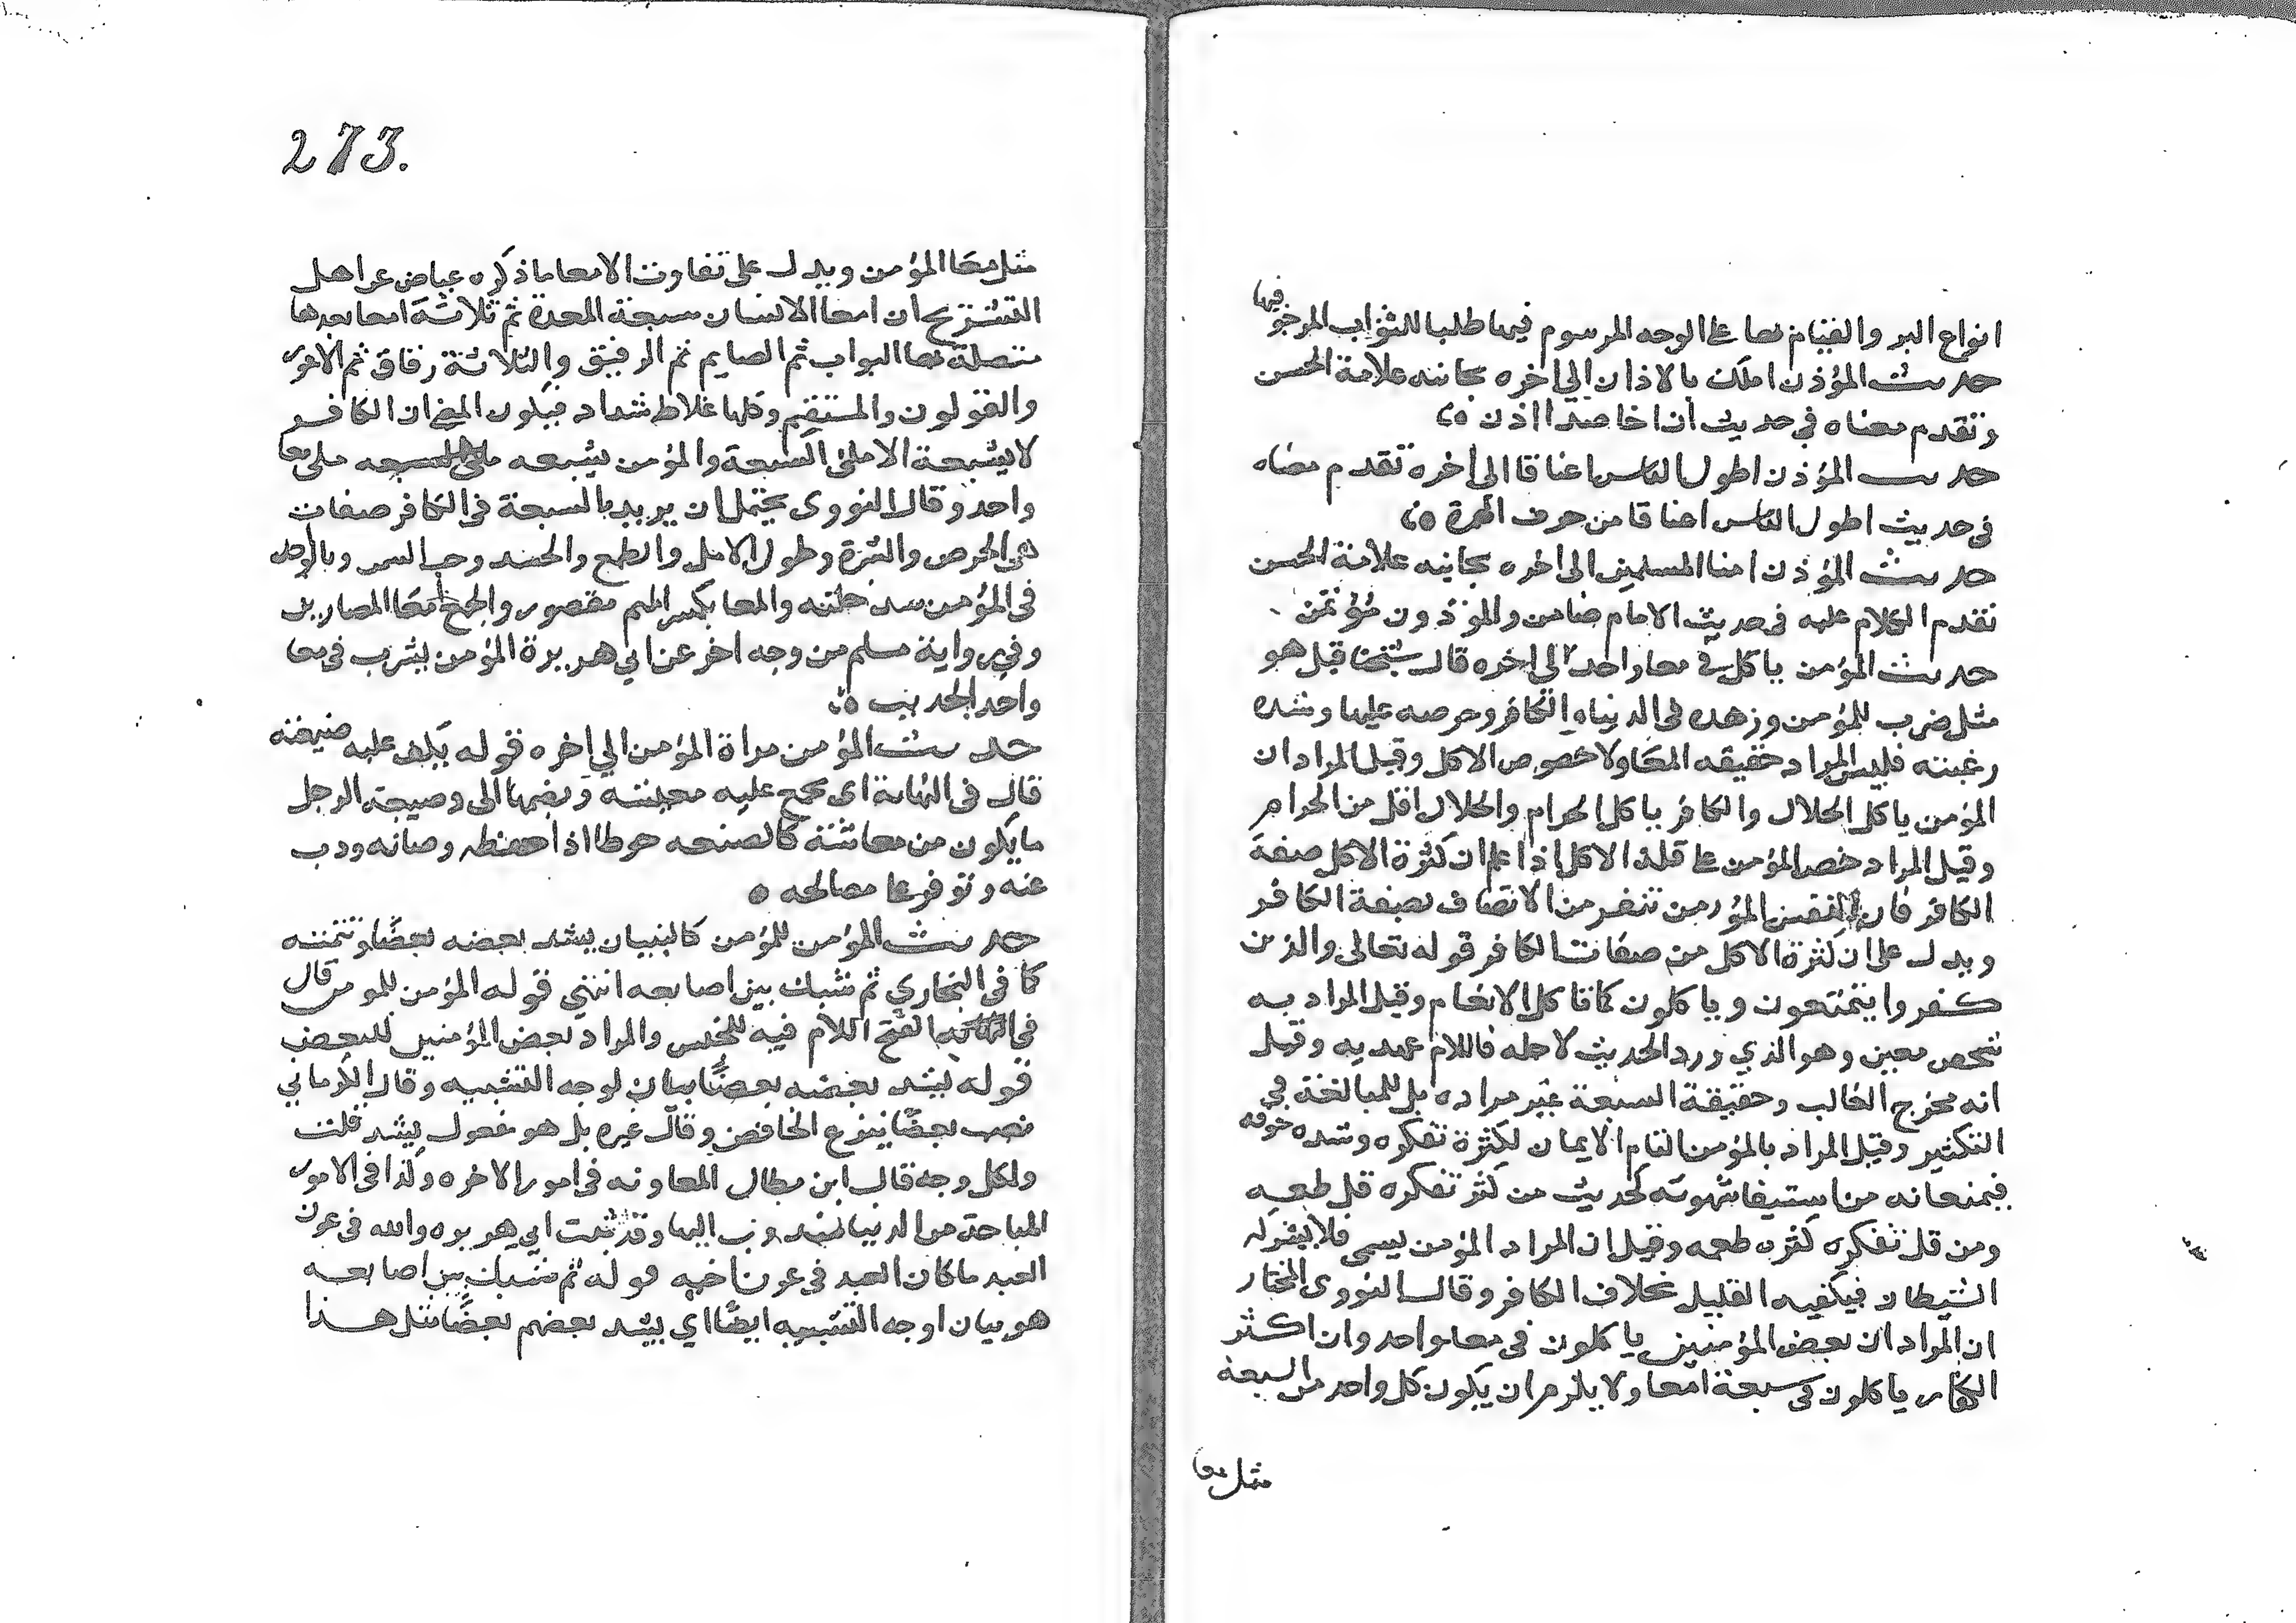 انواع البر والقيام بها على الوجه المرسوم فيها طلبا للثواب المرجو فيها
حديث المؤذن املك بالاذان الي اخره بجانبه علامة الحسن
وتقدم معناه في حديث ان اخا صدا اذن
حديث المؤذن اطول الناس اعناقا الى اخره تقدم معناه
في حديث اطول الناس اعناقا من حرف الهمزة
حديث المؤذن امنا المسلمين الى اخره بجانبه علامة الحسن
تقدم الكلام عليه في حديث الامام ضامن والموذون مؤتمن
حديث المؤمن ياكل في معا واحد الى اخره قال شيخنا قيل هو
مثل ضرب للمؤمن وزهده في الدنيا والكافر وحرصه عليها وشدة
رغبته فليس المراد حقيقه المعا ولا خصوص الاكل وقيل المراد ان
المؤمن ياكل الحلال والكافر ياكل الحرام والحلال اقل من الحرام
وقيل المراد حصر المؤمن على قلة الاكل اذا علم ان كثرة الاكل صفة
الكافر فان نفس المؤمن تنفر من الاتصاف بصفة الكافر
ويدل على ان كثرة الاكل من صفات الكافر قوله تعالى والذين
كفروا يتمتعون وياكلون كما تاكل الانعام وقيل المراد به
شخص معين وهو الذي ورد الحديث لاجله فاللام عهديه وقيل
انه مخرج الغالب وحقيقة السبعة غير مراده بل للمبالغة في
التكثير وقيل المراد بالمؤمن التام الايمان لكثرة تفكره وشدة خوفه
فيمنعانه من استيفا شهوته لحديث من كثر تفكره قل طعمه
ومن قل تفكره كثر طعمه وقيل ان المراد المؤمن يسمي فلا يشركه
الشيطان فيكفيه القليل بخلاف الكافر وقال النووي المختار
ان المراد ان بعض المؤمنين ياكلون في معا واحد وان اكثر
الكفار ياكلون في سبعة امعا ولا يلزم ان يكون كل واحد من السبعة
مثل معا
273.
مثل معا المؤمن ويدل على تفاوت الامعا ما ذكره عياض عن اهل
التشريح ان امعا الانسان سبعة المعدة ثم ثلاثة امعا بعدها
متصلة بها البواب ثم الصايم ثم الرقيق والثلاثة رقاق ثم الاعور
والقولون والمستقيم وكلها غلاظ شداد فيكون المعنى ان الكافر
لا يشبعه الا ملئ السبعة والمؤمن يشبعه ملئ معا
واحد وقال النووي يحتمل ان يريد بالسبعة في الكافر صفات
هي الحرص والشره وطول الامل والطمع والحسد وحب السمن وبالواحد
في المؤمن سد خلته والمعا بكسر الميم مقصور والجمع امعا المصارين
وفي رواية مسلم من وجه اخر عن ابي هريرة المؤمن يشرب في معا
واحد الحديث
حديث المؤمن مراة المؤمن الي اخره قوله يكف عليه ضيعته
قال في النهاية اي يجمع عليه معيشته ويضمها الى وضيعة الرجل
ما يكون من معاشه كالصنعه حوطا اذا حفظه وصانه وذب
عنه وتوفر على مصالحه
حديث المؤمن للمؤمن كالبنيان يشد بعضه بعضا وتتمته
كما في البخاري ثم شبك بين اصابعه انتهي قوله المؤمن للمومن قال
في الفتح اللام فيه للجنس والمراد بعض المؤمنين للبعض
قوله يشد بعضه بعضا بيان لوجه التشبيه وقال الكرماني
نصب بعضا بنزع الخافض وقال غيره بل هو مفعول يشد قلت
ولكل وجه قال ابن بطال المعاونه في امور الاخره وكذا في الامور
المباحة من الدنيا مندوب اليها وقد ثبت ابي هريره والله في عون
العبد ما كان العبد في عون اخيه قوله ثم شبك بين اصابعه
هو بيان لوجه التشبيه ايضا اي يشد بعضهم بعضا مثل هذا